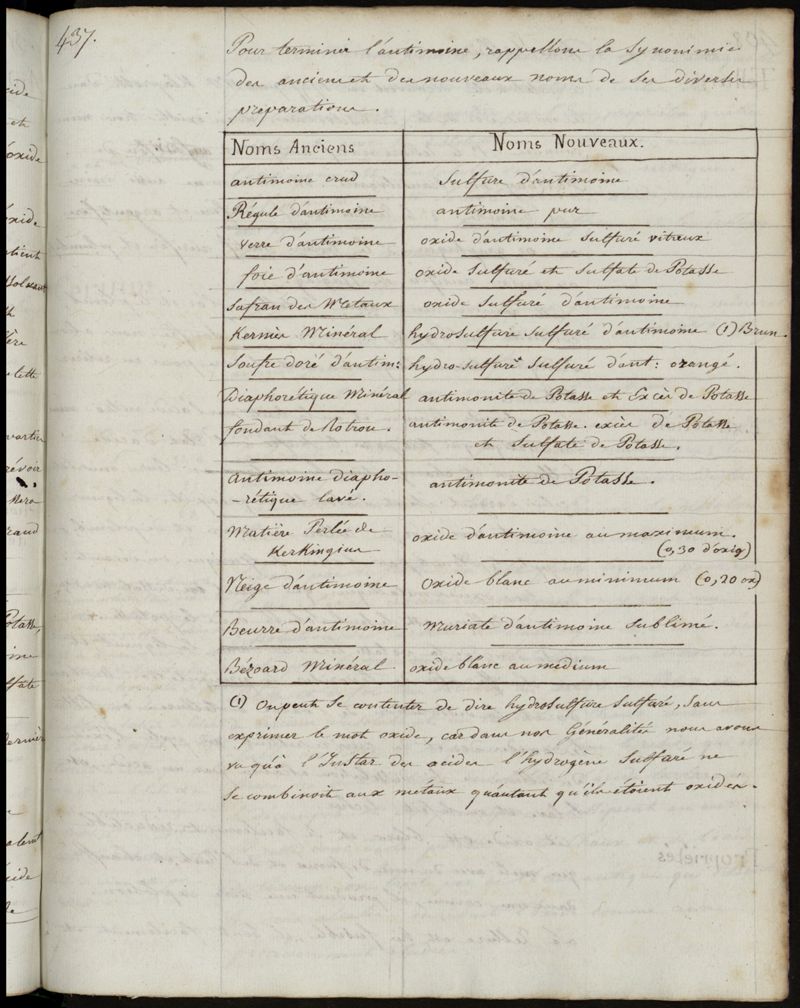 437.
Pour terminer l'antimoine, rappellons la Synonimie
des anciens et des nouveaux noms de ses diverses
préparations.
Noms Anciens | Noms Nouveaux.
antimoine crud | Sulfure d'antimoine
Régule d'antimoine | antimoine pur
verre d'antimoine | oxide d'antimoine Sulfuré vitreux
foie d'antimoine | oxide Sulfuré et Sulfate de Potasse
Safran des Métaux | oxide Sulfuré d'antimoine
Kermès Minéral | hydrosulfure Sulfuré d'antimoine (1) Brun.
Soufre doré d'antim: | hydro-sulfure Sulfuré d'ant: orangé.
Diaphorétique Minéral | antimonite de Potasse et Excès de Potasse
fondant de Rotrou. | antimonite de Potasse. excès de Potasse
et Sulfate de Potasse.
Antimoine diapho-
-rétique lavé. | antimonite de Potasse.
Matière Perlée de
Kerkingius | oxide d'antimoine au maximum.
(0,30 d'oxig)
Neige d'antimoine | Oxide blanc au minimum (0,20 ox)
Beurre d'antimoine | Muriate d'antimoine Sublimé.
Bézoard Minéral | oxide blanc au medium
(1) On peut Se contenter de dire hydrosulfure Sulfuré, Sans
exprimer le mot oxide, car dans nos Généralités nous avons
vu qu'à l'Instar des acides l'hydrogène Sulfuré ne
Se combinoit aux métaux qu'autant qu'ils étoient oxidés.